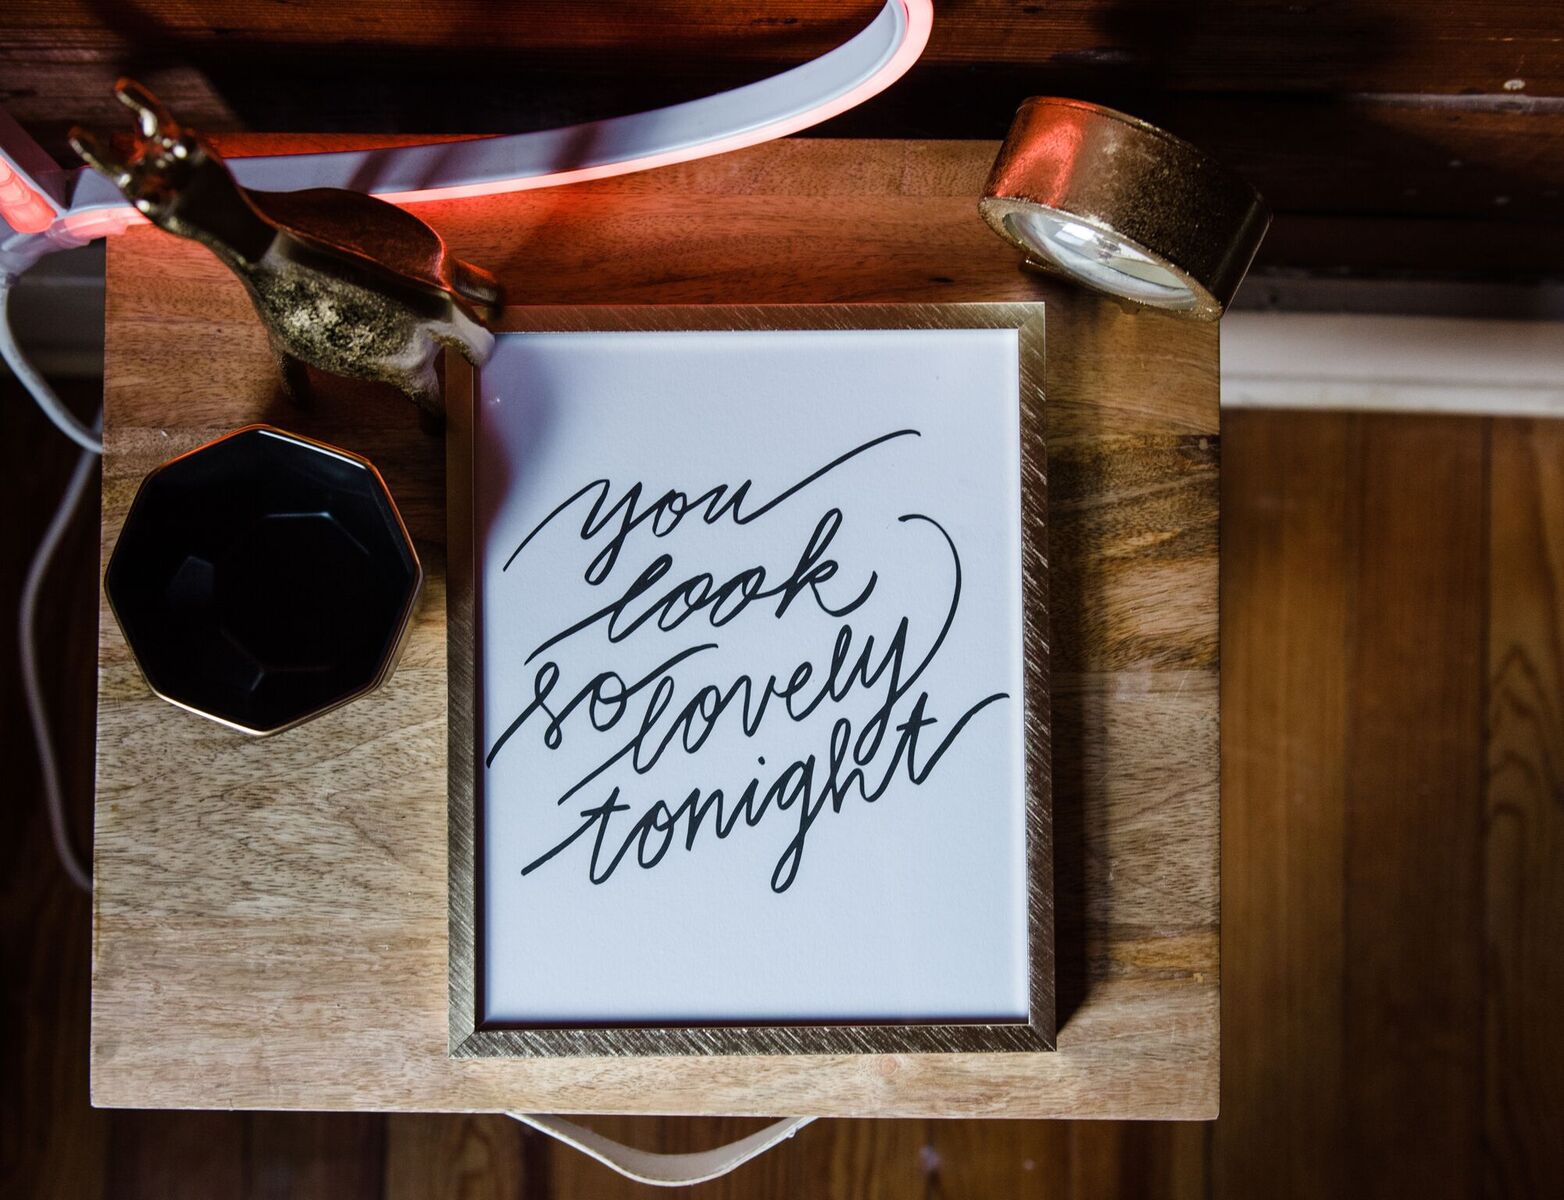 you
look
so lovely
tonight